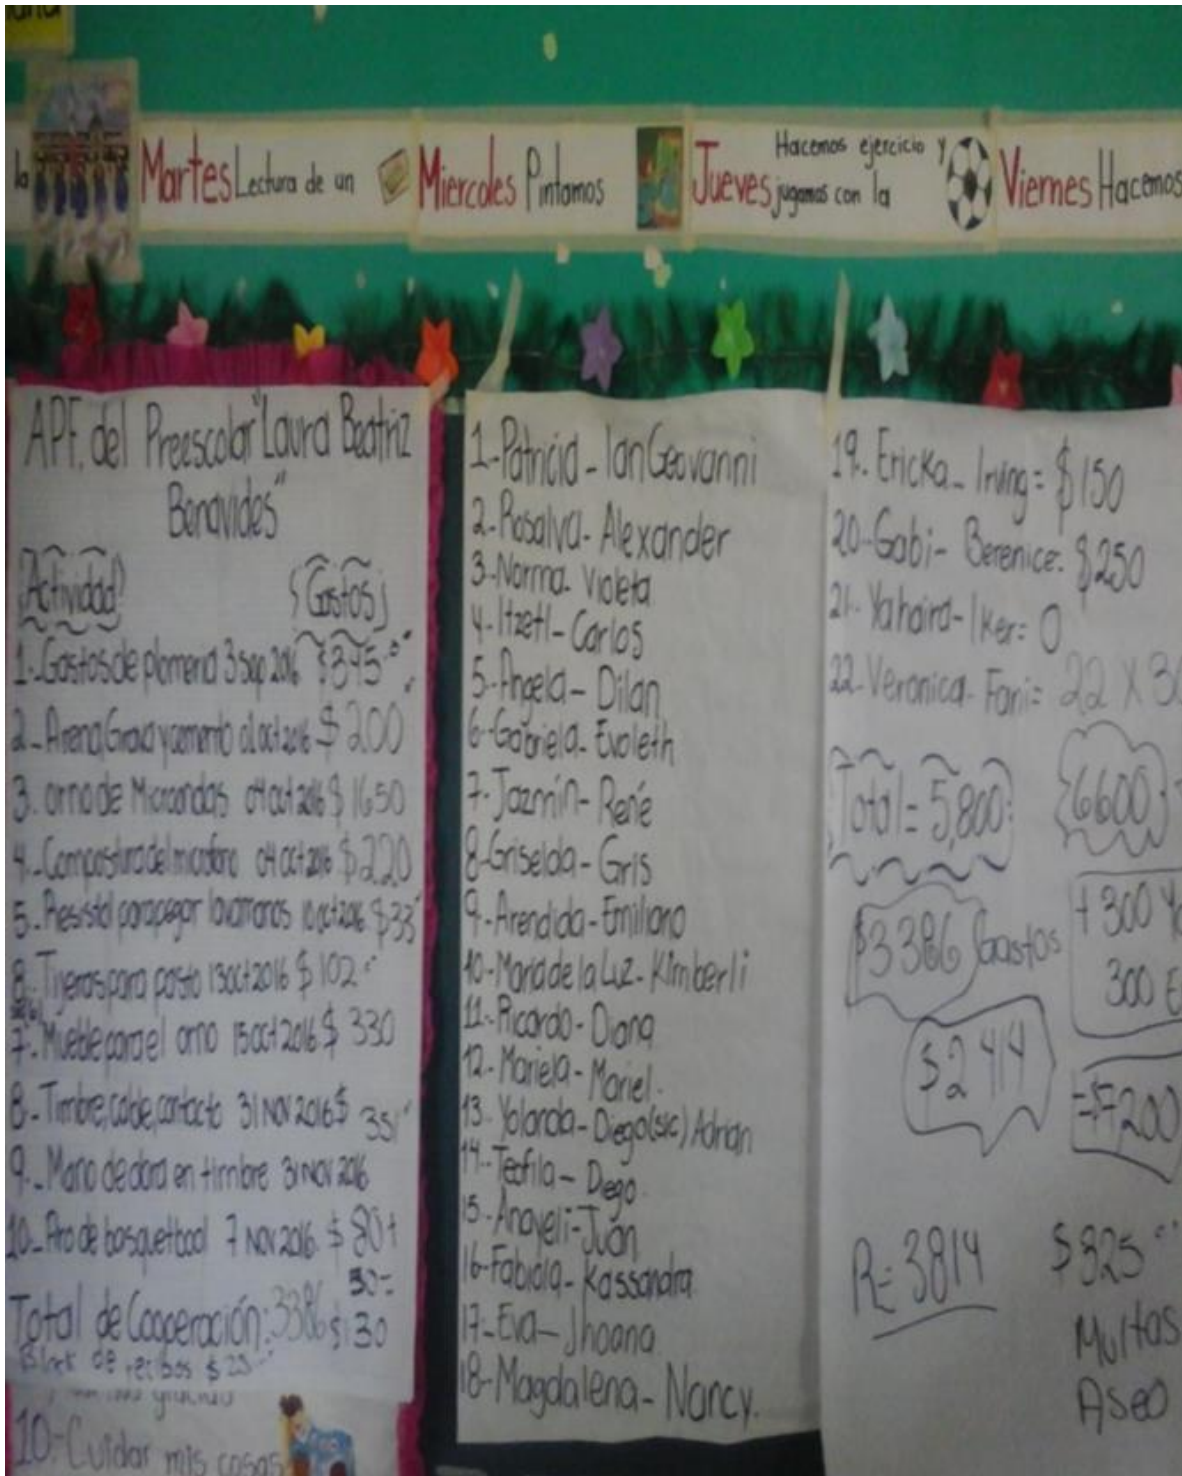 la
Martes Lectura de un
Miercoles Pintamos
Jueves Hacemos ejercicio y
jugamos con la
Viernes Hacemos
APF. del Preescolar "Laura Beatriz
Benavides"
Actividad Gastos
1.-Gastos de plomeria 3 sep 2016 $345
2.-Arena Grava y cemento 01 oct 2016 $200
3. orno de Microondas 04 oct 2016 $1650
4.-Compostura del microfono 04 oct 2016 $220
5.-Resistol para pegar lavamanos 10 oct 2016 $33
Tijeras para pasto 13 oct 2016 $102
7.-Mueble para el orno 15 oct 2016 $330
8.-Timbre, cable, contacto 31 Nov 2016 $351
9.-Mano de obra en timbre 31 Nov 2016
10.-Aro de basquetbool 7 Nov 2016. $80+
50=
Total de Cooperación: 3386 $130
Block de recibos $25
gracias
10-Cuidar mis cosas
1-Patricia-Ian Geovanni
2-Rosalva-Alexander
3-Norma-Violeta
4-Itzetl-Carlos
5-Angela-Dilan
6-Gabriela-Evoleth
7-Jazmín-René
8-Griselda-Gris
9-Arendida-Emiliano
10-Maria de la Luz-Kimberli
11-Ricardo-Diana
12-Mariela-Mariel.
13.Yolanda-Diego(sic)Adrian
14-Teofila-Diego.
15-Anayeli-Juan
16-Fabiola-Kassandra
17-Eva-Jhoana
18-Magdalena-Nancy.
19.Ericka-Irving=$150
20-Gabi-Berenice=$250
21.Yahaira-Iker=0
22-Veronica-Fani= 22 X 30
Total=5,800 6600
$3386 Gastos +300
300 E
$2414
=$7200
R=3814 $325
Multas
Aseo